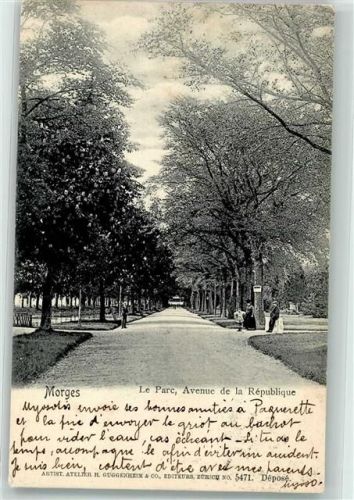 Morges
Le Parc, Avenue de la République
Myosotis envoie ses bonnes amitiés à Paquerette
et la prie d'envoyer le griot au bachot
pour vider l'eau, cas échéant - Si tu as le
temps, accompagne le afin d'éviter un accident.
Je suis bien, content d'être avec mes parents.
Myoso.
ARTIST. ATELIER H. GUGGENHEIM & Co., EDITEURS, ZÜRICH No. 5471. Déposé.